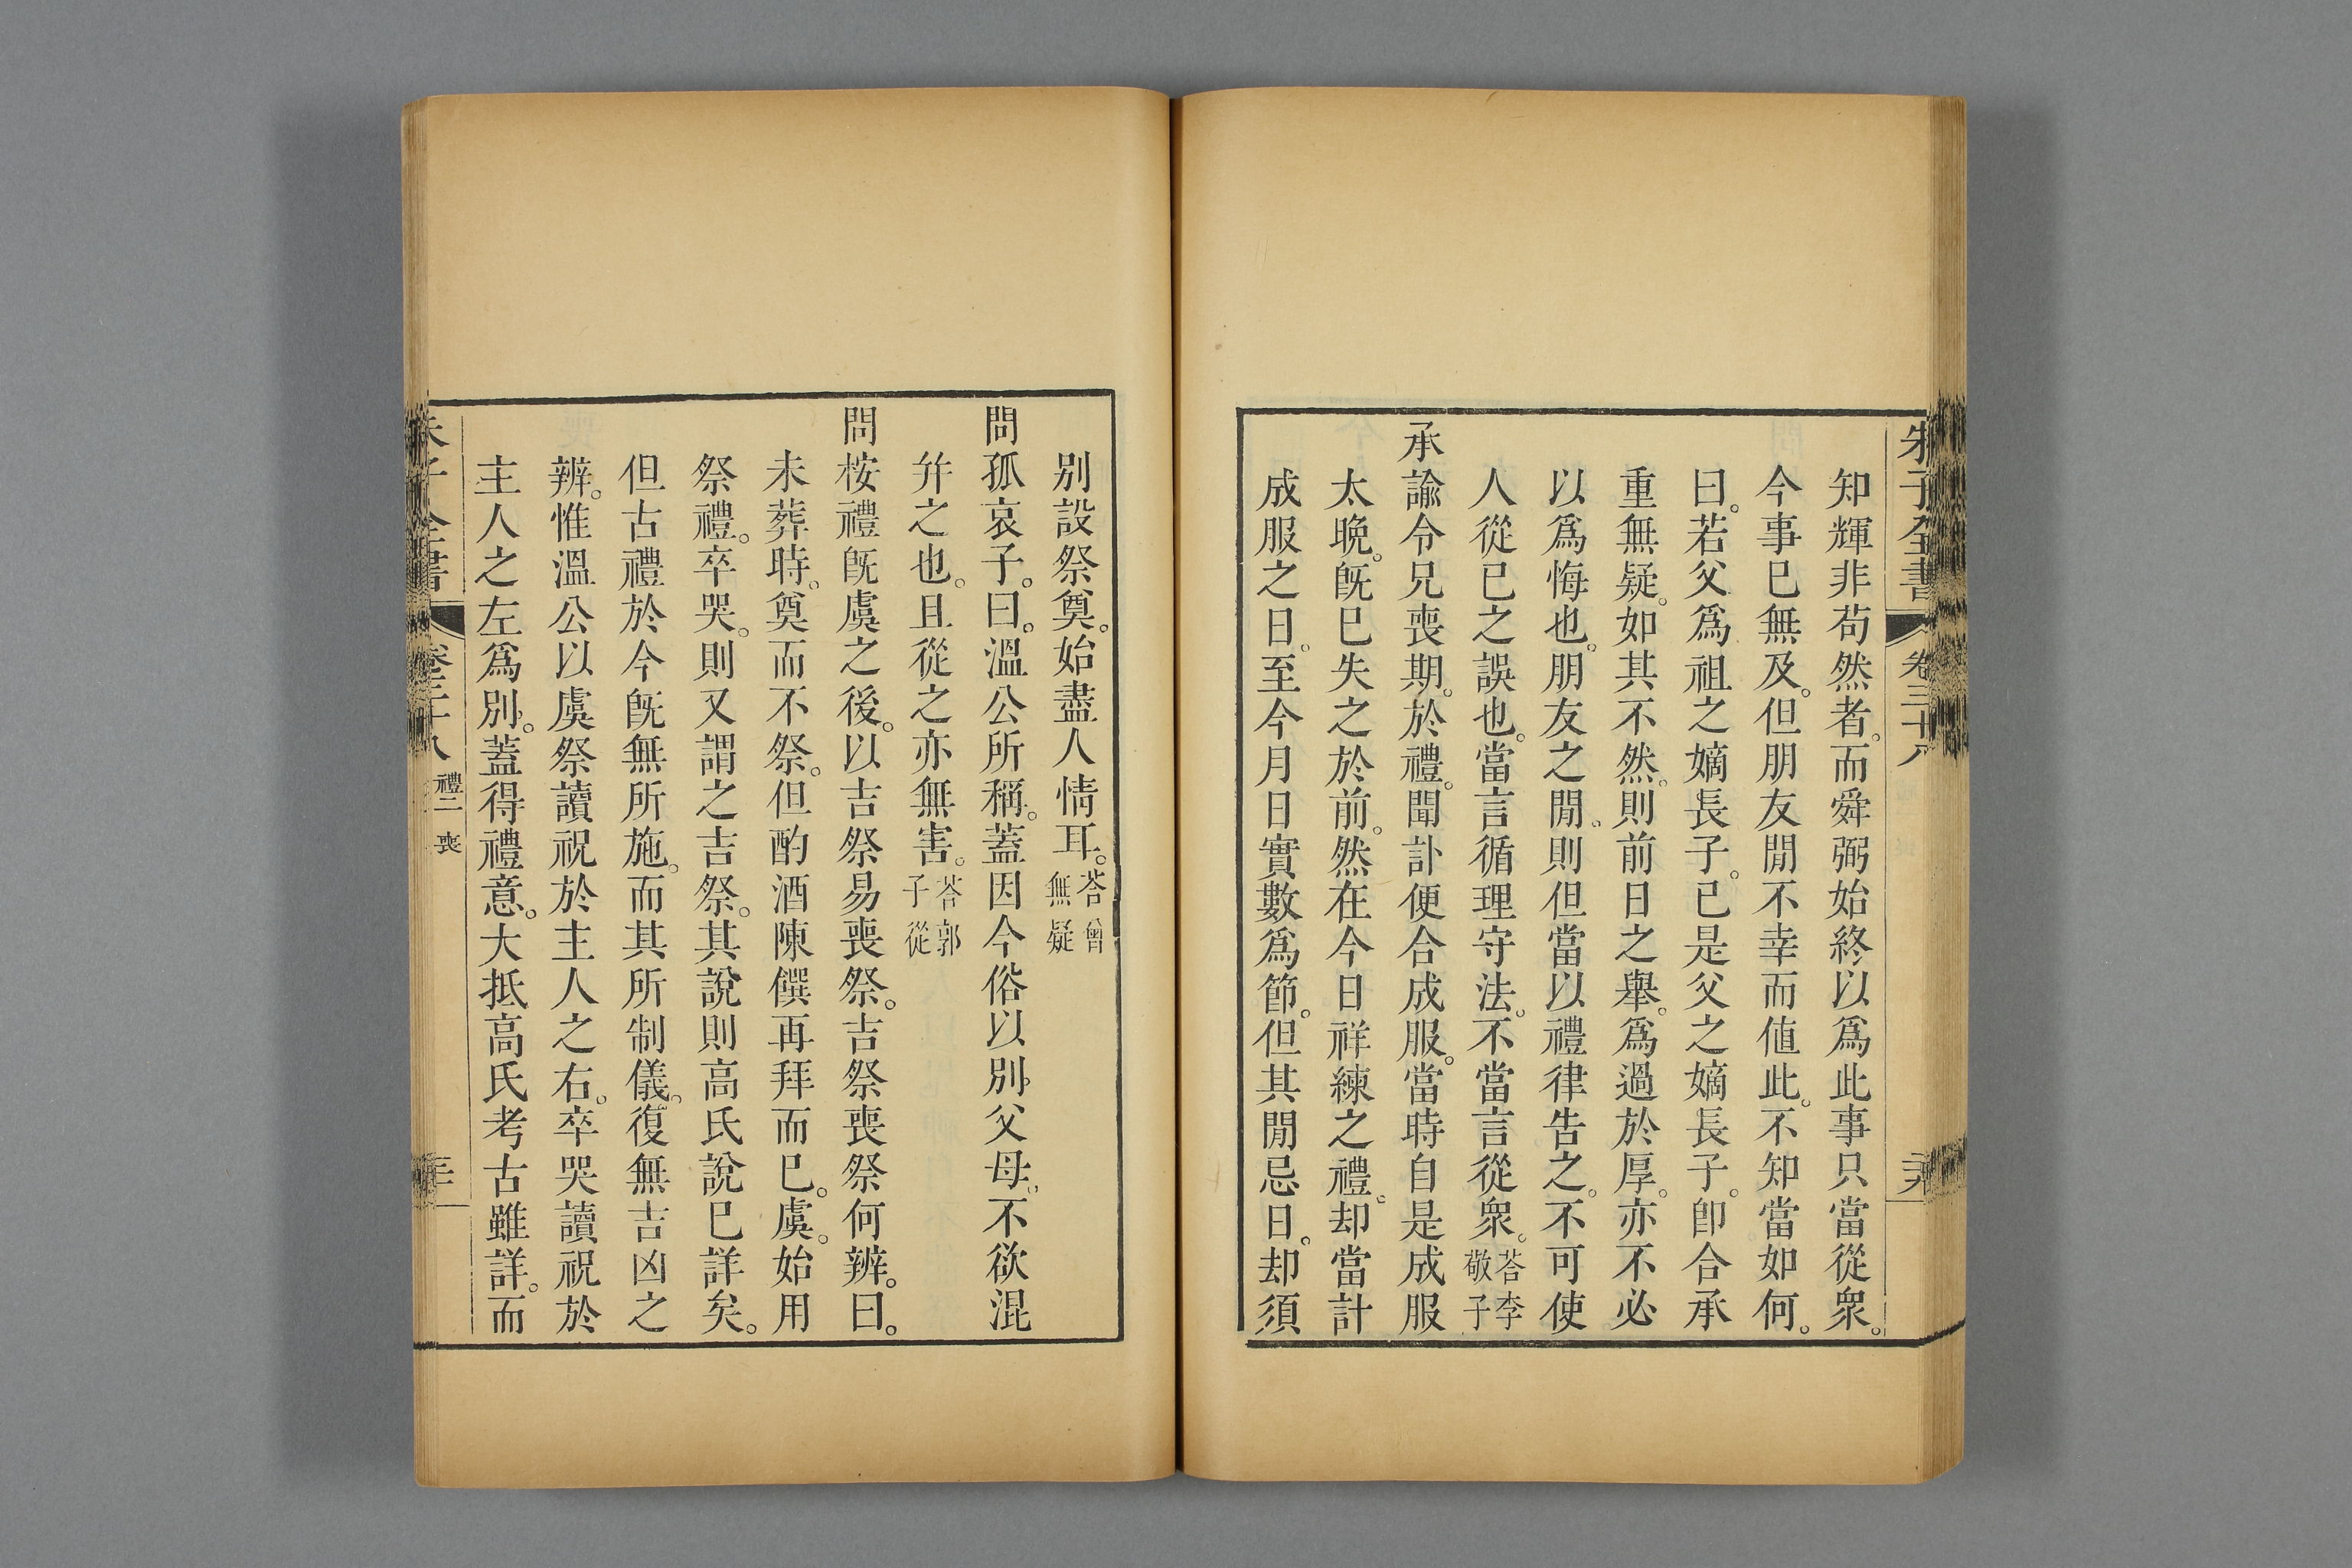 朱子全書 卷三十八
知輝非苟然者。而舜弼始終以爲此事只當從衆。
今事已無及。但朋友閒不幸而値此。不知當如何。
曰。若父爲祖之嫡長子。已是父之嫡長子。卽合承
重無疑。如其不然。則前日之舉。爲過於厚。亦不必
以爲悔也。朋友之閒。則但當以禮律告之。不可使
人從已之誤也。當言循理守法。不當言從衆。荅李敬子
承諭令兄喪期。於禮。聞訃便合成服。當時自是成服
太晩。旣已失之於前。然在今日祥練之禮。却當計
成服之日。至今月日實數爲節。但其閒忌日。却須
別設祭奠。始盡人情耳。荅曾無疑
問孤哀子。曰。溫公所稱。蓋因今俗以別父母。不欲混
幷之也。且從之亦無害。荅郭子從
問桉禮旣虞之後。以吉祭易喪祭。吉祭喪祭何辨。曰。
未葬時。奠而不祭。但酌酒陳饌再拜而已。虞。始用
祭禮。卒哭。則又謂之吉祭。其說則高氏說已詳矣。
但古禮於今旣無所施。而其所制儀。復無吉凶之
辨。惟溫公以虞祭讀祝於主人之右。卒哭讀祝於
主人之左爲別。蓋得禮意。大抵高氏考古雖詳。而
朱子全書 卷三十八 禮二 喪